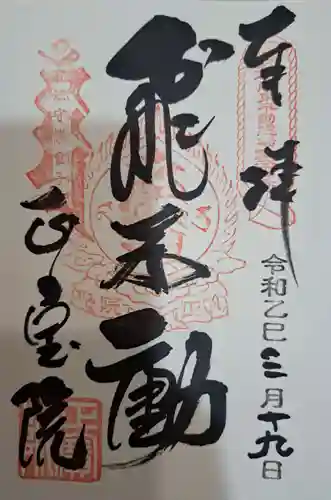 奉拝
令和乙巳 三月十九日
飛不動
正宝院